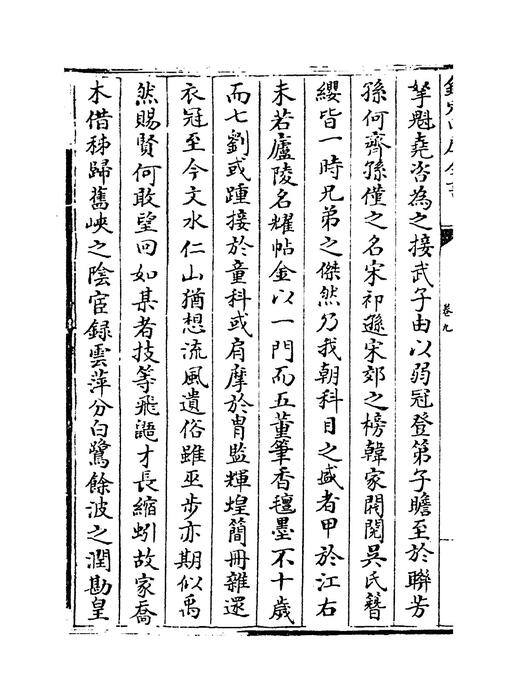 拏魁堯咨為之接武子由以弱冠登第子瞻至於聯芳
孫何齊孫僅之名宋祁遜宋郊之榜韓家閥閱吳氏簪
纓皆一時兄弟之傑然乃我朝科目之盛者甲於江右
未若廬陵名耀帖金以一門而五董筆香氊墨不十歲
而七劉或踵接於童科或肩摩於胄監輝煌簡冊雜遝
衣冠至今文水仁山猶想流風遺俗雖巫步亦期似禹
然賜賢何敢望回如某者技等飛鼯才長縮蚓故家喬
木借秭歸舊峽之陰宦録雲萍分白鷺餘波之潤勘皇
卷九